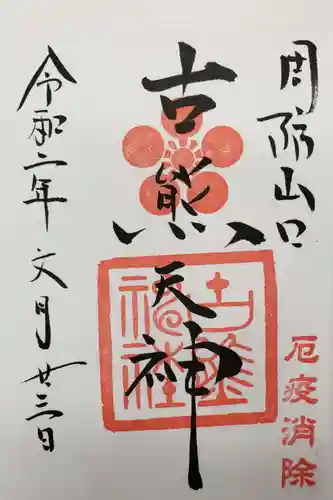 周防山口
厄疫消除
古熊天神
古熊神社
令和二年文月廿三日